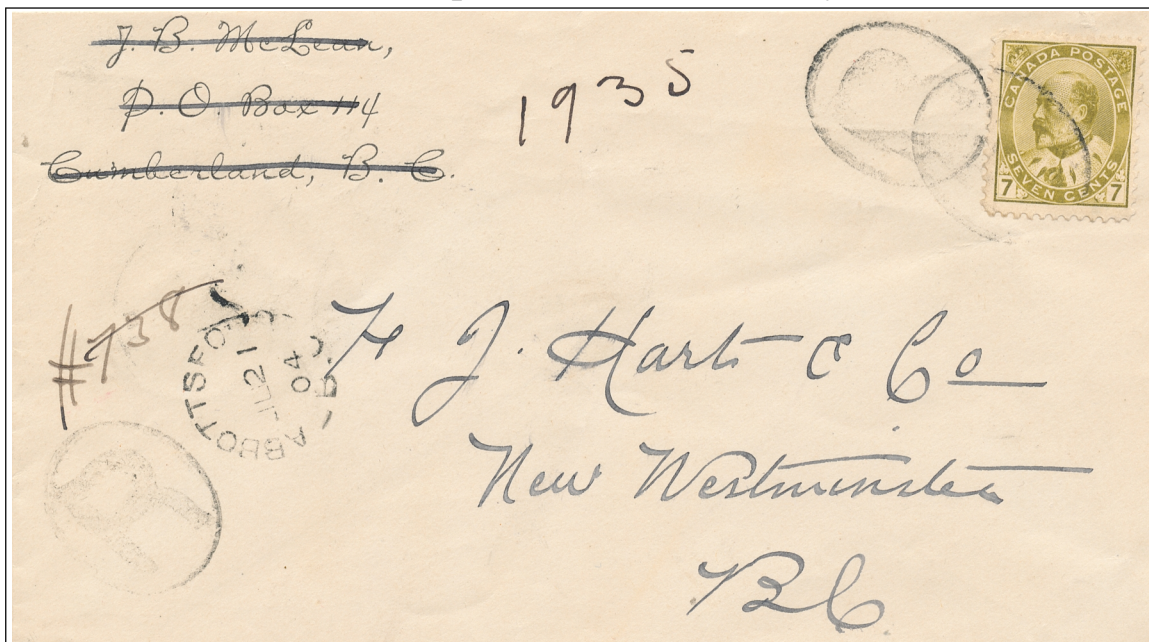 J. B. McLean,
P. O. Box 114
Cumberland, B. C.
1935
CANADA POSTAGE
SEVEN CENTS
7 7
#738
ABBOTTSFORD
JL 21
04
B.C
F J. Hart & Co
New Westminster
B C